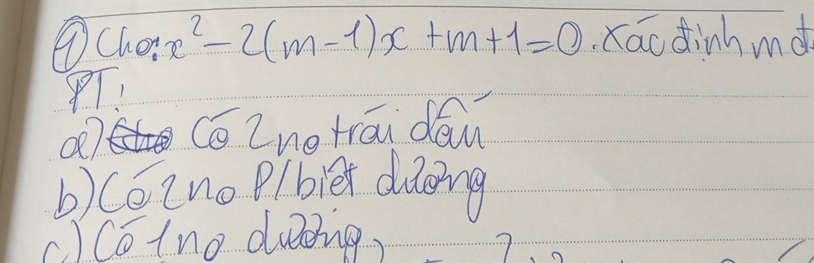 ① Cho: x² - 2(m-1)x + m + 1 = 0. Xác định m
PT:
a) Có 2 no trái dấu
b) Có 2 no p/biệt dương
c) Có 1 no dương,